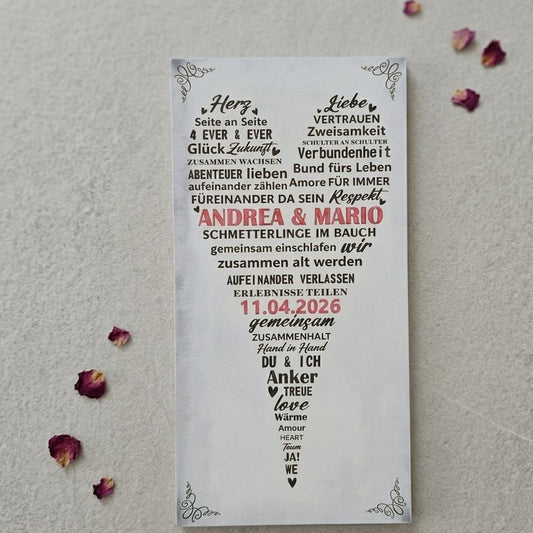 Herz
Seite an Seite
4 EVER & EVER
Glück Zukunft
ZUSAMMEN WACHSEN
ABENTEUER lieben
aufeinander zählen
Liebe
VERTRAUEN
Zweisamkeit
SCHULTER AN SCHULTER
Verbundenheit
Bund fürs Leben
Amore FÜR IMMER
FÜREINANDER DA SEIN Respekt
ANDREA & MARIO
SCHMETTERLINGE IM BAUCH
gemeinsam einschlafen wir
zusammen alt werden
AUFEINANDER VERLASSEN
ERLEBNISSE TEILEN
11.04.2026
gemeinsam
ZUSAMMENHALT
Hand in Hand
DU & ICH
Anker
TREUE
love
Wärme
Amour
HEART
Team
JA!
WE